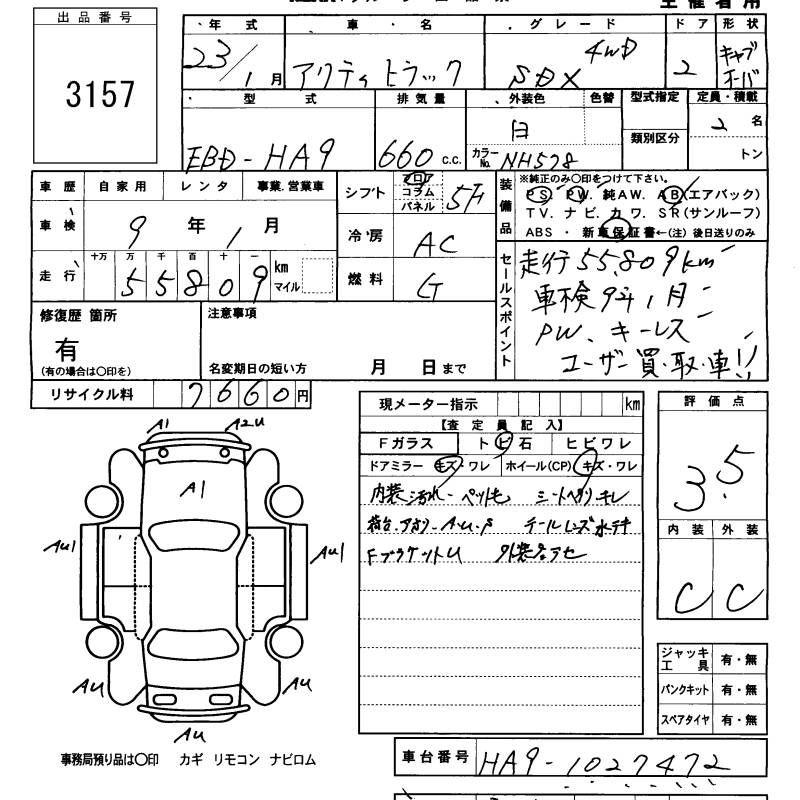 出品番号
3157
年式 車名 グレード ドア 形状
23/1月 アクティ トラック SDX 4WD 2 キャブオーバ
型式 排気量 外装色 色替 型式指定 定員・積載
EBD-HA9 660 c.c. 白 類別区分 2 名
カラーNo. NH578 トン
車歴 自家用 レンタ 事業.営業車
車検 9年 1月
走行 十万 万 千 百 十 一
55809 km マイル
シフト フロア コラム パネル 5F
冷房 AC
燃料 G
装備品
※純正のみ〇印をつけて下さい。
PS. PW. 純AW. AB(エアバック)
TV. ナビ. カワ. SR(サンルーフ)
ABS ・ 新車保証書←(注) 後日送りのみ
セールスポイント
走行 55,809km
車検 9年1月
PW、キーレス
ユーザー買取車!!
修復歴 箇所
有
(有の場合は〇印を)
注意事項
名変期日の短い方 月 日まで
リサイクル料 7660円
現メーター指示 km
【査定員記入】
Fガラス トビ石 ヒビワレ
ドアミラー キズ・ワレ ホイール(CP) キズ・ワレ
内装汚れ・ペット毛 シートヘタリ・キレ
荷台・アオリ-A・U・S テールレンズ水テキ
FブラケットU 外装色アセ
評価点
3.5
内装 外装
C C
A1 A2U
A1
AU1 AU1
AU AU
AU
ジャッキ工具 有・無
パンクキット 有・無
スペアタイヤ 有・無
事務局預り品は〇印 カギ リモコン ナビロム
車台番号 HA9-1027472